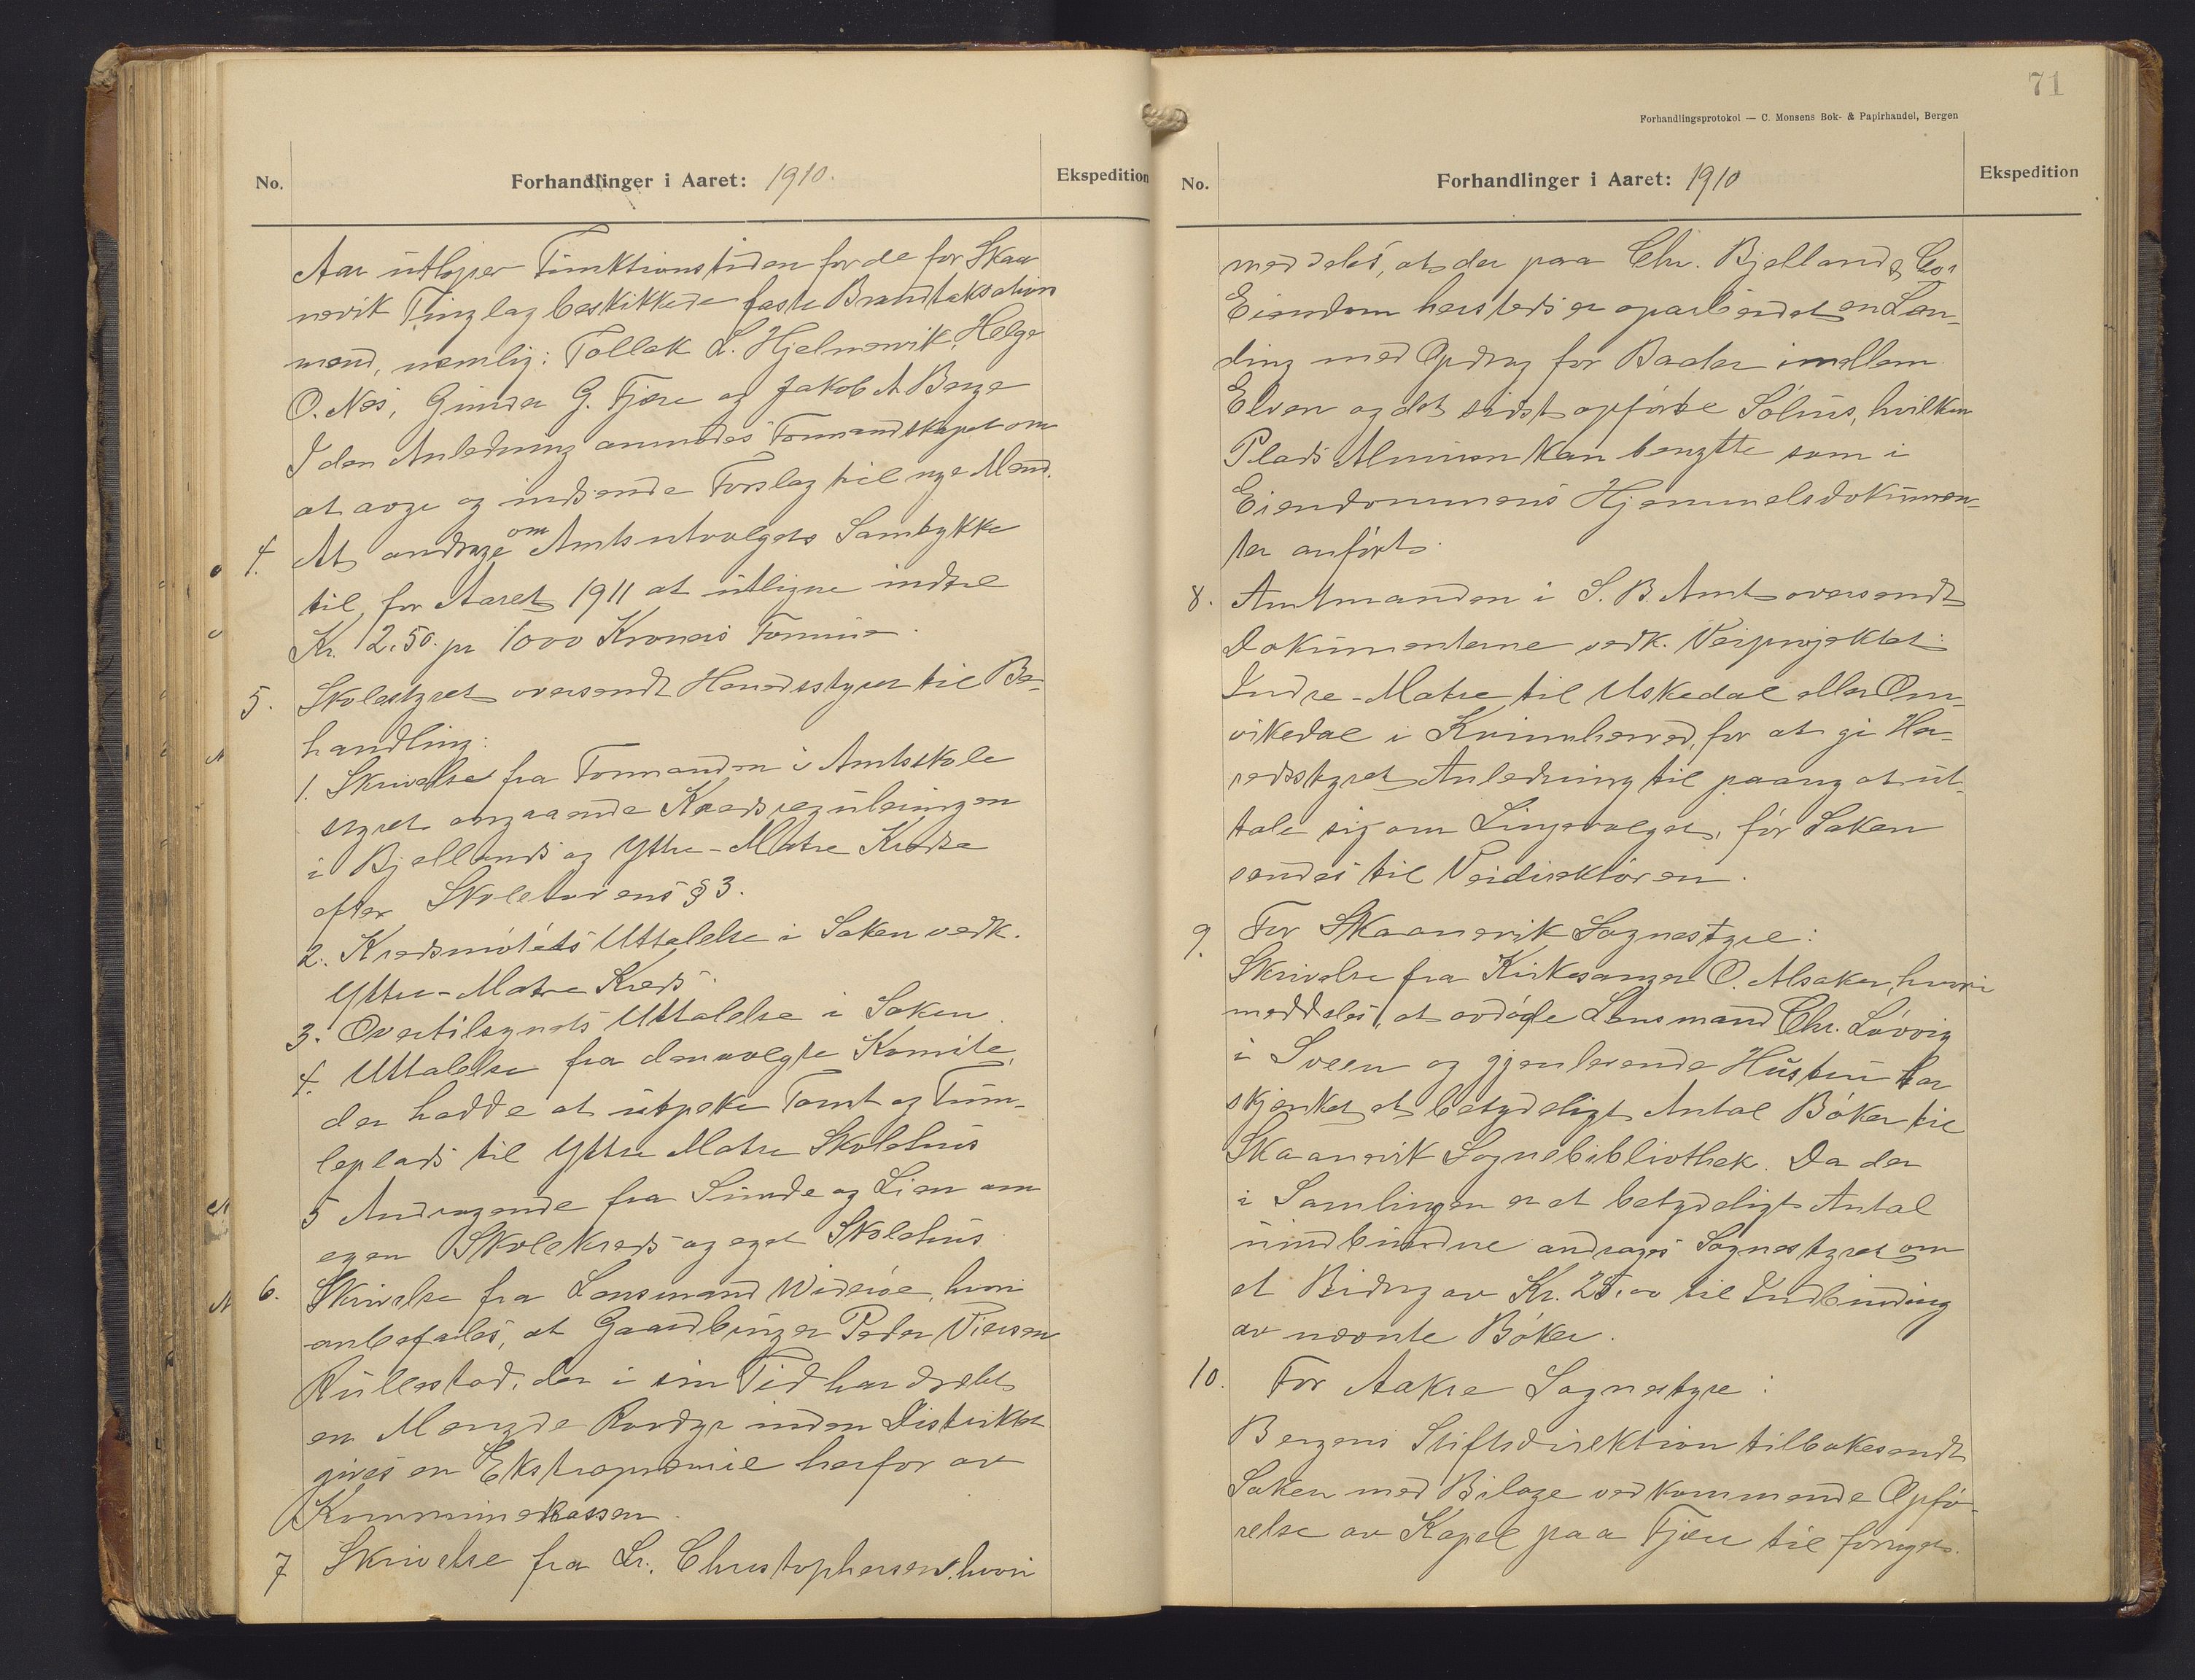 No.
Forhandlinger i Aaret: 1910.
Ekspedition
Aar utløper Funktionstiden for de for Skaa
nevik Tinglag beskikkede faste Brandtaksations
mænd, nemlig: Tollak L. Hjelmevik, Helge
O. Næs, Gunder G. Fjære og Jakob A. Berge
I den Anledning anmodes Formandskapet om
at avgi og indsende Forslag til nye Mænd.
4. At andrage om Amtsutvalgets Samtykke
til for Aaret 1911 at utligne indtil
Kr. 2,50. pr 1000 Kroners Formue.
5. Skolestyret oversendt Heredsstyret til Be-
handling:
1. Skrivelse fra Formanden i Amtsskole
styret angaaende Kredsreguleringen
i Bjellands og Ytre-Matre Kredse
efter Skolelovens § 3.
2. Kredsmøtets Uttalelse i Saken vedk.
Yttre-Matre Kreds.
3. Overtilsynets Uttalelse i Saken.
4. Uttalelse fra den valgte Komite,
der hadde at utpeke Tomt og Tum-
leplads til Yttre Matre Skolehus
5 Andragende fra Sunde og Lien om
egen Skolekreds og eget Skolehus
6. Skrivelse fra Lensmand Widerøe, hvori
anbefales, at Gaardbruger Peder Viersen
Rullestad, der i sin Tid har dræbt
en Mengde Rovdyr inden Distriktet
gives en Ekstrapremie herfor av
Kommunekassen.
7 Skrivelse fra Lr. Christophersen, hvori
71
Forhandlingsprotokol — C. Monsens Bok- & Papirhandel, Bergen
No.
Forhandlinger i Aaret: 1910
Ekspedition
meddeles, at der paa Chr. Bjelland & Co's
Eiendom hersteds er oparbeidet en Lan-
ding med Opdrag for Baater imellem
Elven og det sidst opførte Sølhus, hvilken
Plads Almuen kan benytte som i
Eiendommens Hjemmelsdokumen-
ter anført.
8. Amtmanden i S. B. Amt oversendt
Dokumenterne vedk. Veiprojektet:
Indre-Matre til Uskedal eller Om-
vikedal i Kvinnherred, for at gi He-
redsstyret Anledning til paany at ut-
tale sig om Linjevalget, før Saken
sendes til Veidirektøren.
9. For Skaanevik Sognestyre:
Skrivelse fra Kirkesanger O. Alsaker, hvori
meddeles, at avdøde Lensmand Chr. Løvvig
i Sveen og gjenlevende Hustru har
skjenket et betydeligt Antal Bøker til
Skaanevik Sognebibliothek. Da der
i Samlingen er et betydeligt Antal
uindbundne andrages Sognestyret om
et Bidrag av Kr. 25,00 til Indbinding
av nævnte Bøker.
10. For Aakre Sognestyre:
Bergens Stiftsdirektion tilbakesendt
Saken med Bilage vedkommende Opfø-
relse av Kapel paa Fjære til fornyet.